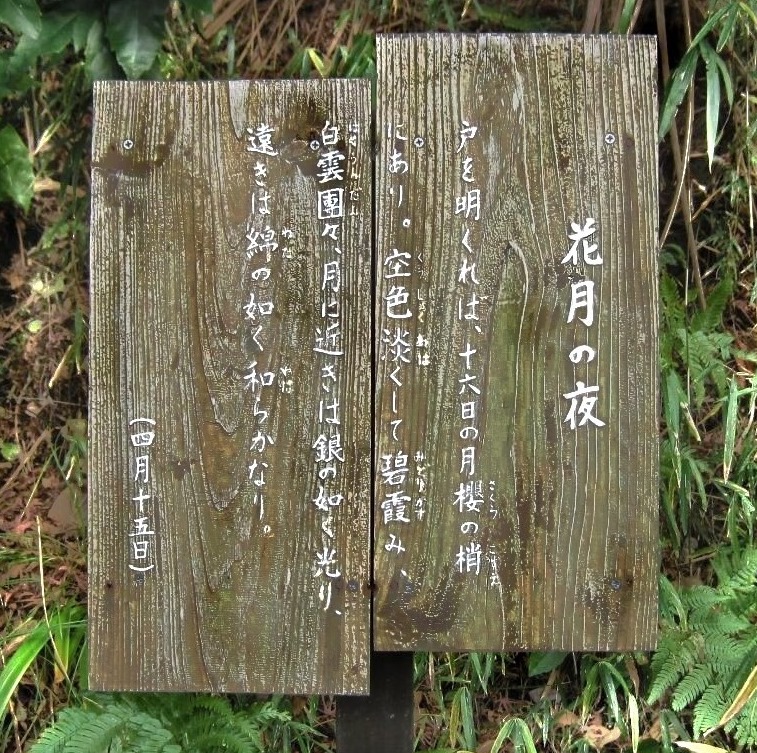 花月の夜
戸を明くれば、十六日の月櫻の梢
にあり。空色淡くして碧霞み、
白雲團々、月に近きは銀の如く光り、
遠きは綿の如く和らかなり。
(四月十五日)